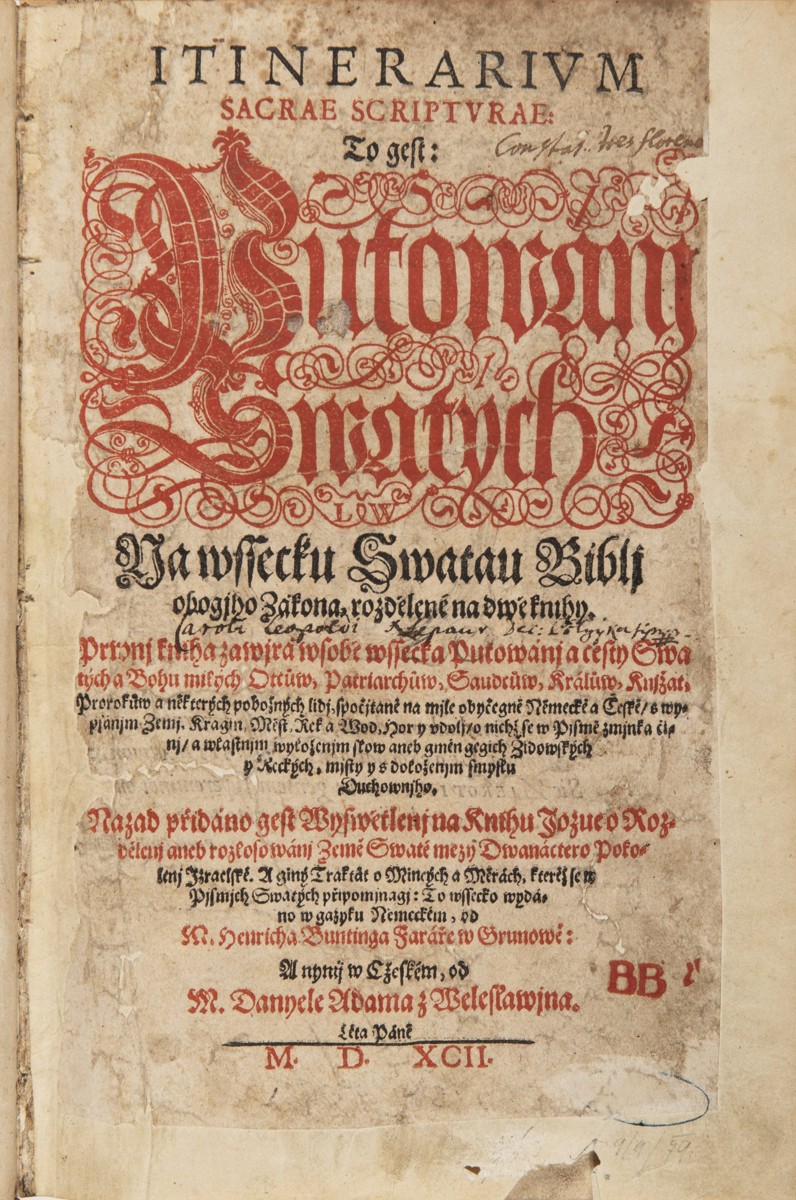 ITINERARIVM
SACRAE SCRIPTVRAE:
To gest:
Putowánj
Swatých
L W
Na wssecku Swatau Biblj
obogjho Zákona, rozdělené na dwě knihy.
Prwnj kniha zawjrá w sobě wssecka Putowánj a cesty Swa
tých a Bohu milých Otcůw, Patriarchůw, Saudcůw, Králůw, Knjžat,
Prorokůw a některých pobožných lidj, spočjtané na mjle obyčegné Německé a České/ s wy-
psánjm Zemj, Kragin, Měst, Řek a Wod, Hor y vdolj/ o nichž se w Pjsmě zmjnka či-
nj/ a wlastnjm wyložením slow aneb gmén gegich Židowských
y Řeckých, mjsty y s doloženjm smyslu
Duchownjho.
Nazad přidáno gest Wyswětlenj na Knihu Jozue o Roz-
dělenj aneb rozlosowánj Země Swaté mezy Dwanáctero Poko-
lenj Izraelské. A giný Traktát o Mincých a Měrách, kteréž se w
Pjsmjch Swatých připomjnagj: To wssecko wydá-
no w gazyku Německém, od
M. Henricha Buntinga Faráře w Grunowě:
A nynj w Cžeském, od
M. Danyele Adama z Weleslawjna.
Léta Páně
M. D. XCII.
BB